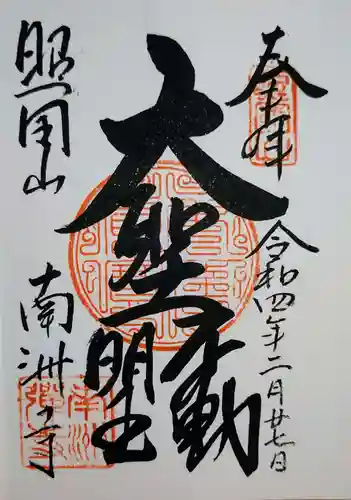 奉拝
令和四年二月廿七日
大聖
不動
明王
照国山
南洲寺